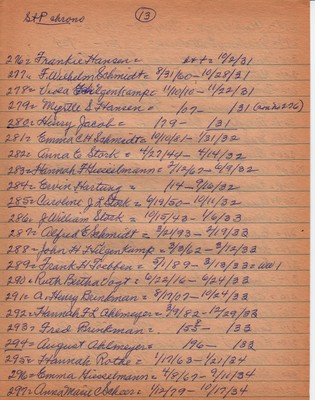 S+P chrons
13
276 = Frankie Hansen = 10/2/31
277 = F. Wilhelm Schmidt = 8/31/60 - 10/28/31
278 = Viola Hilgenkamp = 11/10/10 - 11/22/31
279 = Myrtle S. Hansen = /07 - /31
280 = Henry Jacob = /79 - /31
281 = Emma C H Schmidt = 10/10/81 - 1/31/32
282 = Anna E. Stork = 4/27/44 - 4/14/32
283 = Hannah F. Hesselmann = 7/12/67 - 6/9/32
284 = Ervin Hartung = /14 - 9/16/32
285 = Caroline J L Stork = 6/19/50 - 10/11/32
286 = J. William Stork = 10/15/43 - 1/6/33
287 = Alfred E. Schmidt = 2/2/93 - 2/19/33
288 - John H. Hilgenkamp = 3/3/62 - 3/12/33
289 = Frank H. Toebben = 5/1/89 - 3/13/33 = WW 1
290 = Ruth Bertha Vogt = 6/22/16 - 4/24/33
291 = A. Henry Brinkman = 8/17/07 - 10/24/33
292 = Hannah F L Ahlmeyer = 3/9/82 - 12/29/33
293 = Fred Brinkman = /58 - /33
294 = August Ahlmeyer = /96 - /33
295 = Hannah Rothe = 1/17/63 - 1/21/34
296 = Emma Hesselmann = 4/8/67 - 9/11/34
297 = Anna Marie C. = 1/12/79 - 10/17/34